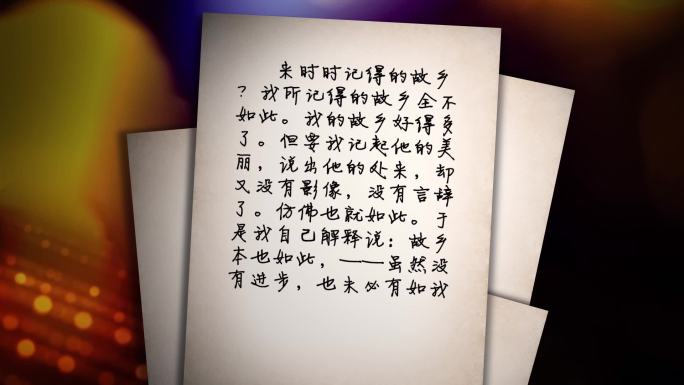 来时时记得的故乡
？我所记得的故乡全不
如此。我的故乡好得多
了。但要我记起他的美
丽，说出他的处来，却
又没有影像，没有言辞
了。仿佛也就如此。于
是我自己解释说：故乡
本也如此，——虽然没
有进步，也未必有如我